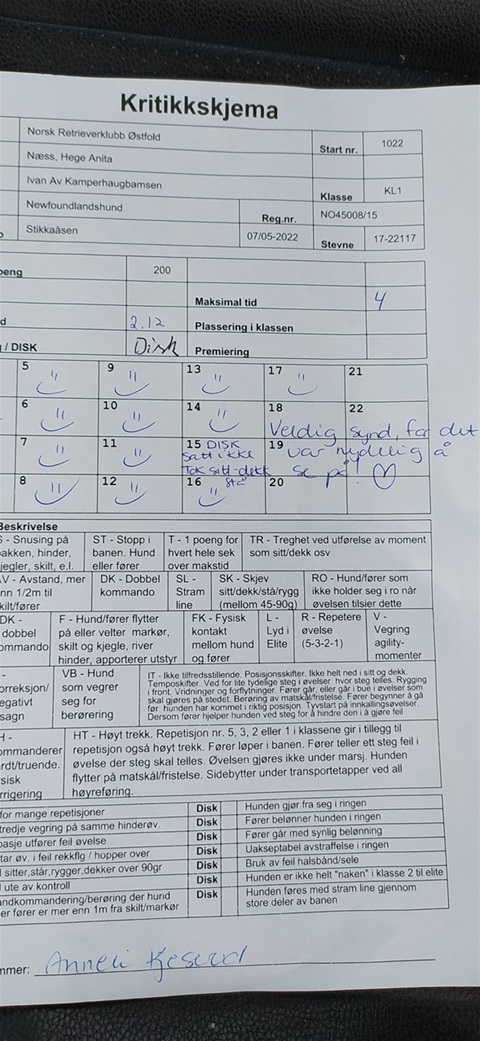 Kritikkskjema
Norsk Retrieverklubb Østfold
Start nr. 1022
Næss, Hege Anita
Ivan Av Kamperhaugbamsen
Klasse KL1
Newfoundlandshund
Reg.nr. NO45008/15
Stikkaåsen 07/05-2022 Stevne 17-22117
oeng 200
Maksimal tid 4
d 2.12 Plassering i klassen
/ DISK Disk Premiering
5 9 13 17 21
6 10 14 18 22
Veldig synd, for det
7 11 15 DISK 19 var nydelig å
satt ikke
Tok sitt-dekk se på! ♡
stå
8 12 16 20
Beskrivelse
S - Snusing på
bakken, hinder,
kjegler, skilt, e.l.
ST - Stopp i
banen. Hund
eller fører
T - 1 poeng for
hvert hele sek
over makstid
TR - Treghet ved utførelse av moment
som sitt/dekk osv
AV - Avstand, mer
enn 1/2m til
skilt/fører
DK - Dobbel
kommando
SL -
Stram
line
SK - Skjev
sitt/dekk/stå/rygg
(mellom 45-90g)
RO - Hund/fører som
ikke holder seg i ro når
øvelsen tilsier dette
DK -
dobbel
ommando
F - Hund/fører flytter
på eller velter markør,
skilt og kjegle, river
hinder, apporterer utstyr
FK - Fysisk
kontakt
mellom hund
og fører
L -
Lyd i
Elite
R - Repetere
øvelse
(5-3-2-1)
V -
Vegring
agility-
momenter
orreksjon/
egativt
sagn
VB - Hund
som vegrer
seg for
berørering
IT - Ikke tilfredsstillende. Posisjonsskifter. Ikke helt ned i sitt og dekk.
Temposkifter. Ved for lite tydelige steg i øvelser hvor steg telles. Rygging
i front. Vridninger og forflytninger. Fører går, eller går i bue i øvelser som
skal gjøres på stedet. Berøring av matskål/fristelse. Fører begynner å gå
før hunden har kommet i riktig posisjon. Tyvstart på innkallingsøvelser.
Dersom fører hjelper hunden ved steg for å hindre den i å gjøre feil
H -
ommanderer
rdt/truende.
sisk
rrigering
HT - Høyt trekk. Repetisjon nr. 5, 3, 2 eller 1 i klassene gir i tillegg til
repetisjon også høyt trekk. Fører løper i banen. Fører teller ett steg feil i
øvelse der steg skal telles. Øvelsen gjøres ikke under marsj. Hunden
flytter på matskål/fristelse. Sidebytter under transportetapper ved all
høyreføring.
for mange repetisjoner Disk Hunden gjør fra seg i ringen
tredje vegring på samme hinderøv. Disk Fører belønner hunden i ringen
pasje utfører feil øvelse Disk Fører går med synlig belønning
tar øv. i feil rekkflg / hopper over Disk Uakseptabel avstraffelse i ringen
sitter,står,rygger,dekker over 90gr Disk Bruk av feil halsbånd/sele
ute av kontroll Disk Hunden er ikke helt "naken" i klasse 2 til elite
andkommandering/berøring der hund
er fører er mer enn 1m fra skilt/markør
Disk Hunden føres med stram line gjennom
store deler av banen
mmer: Anneli